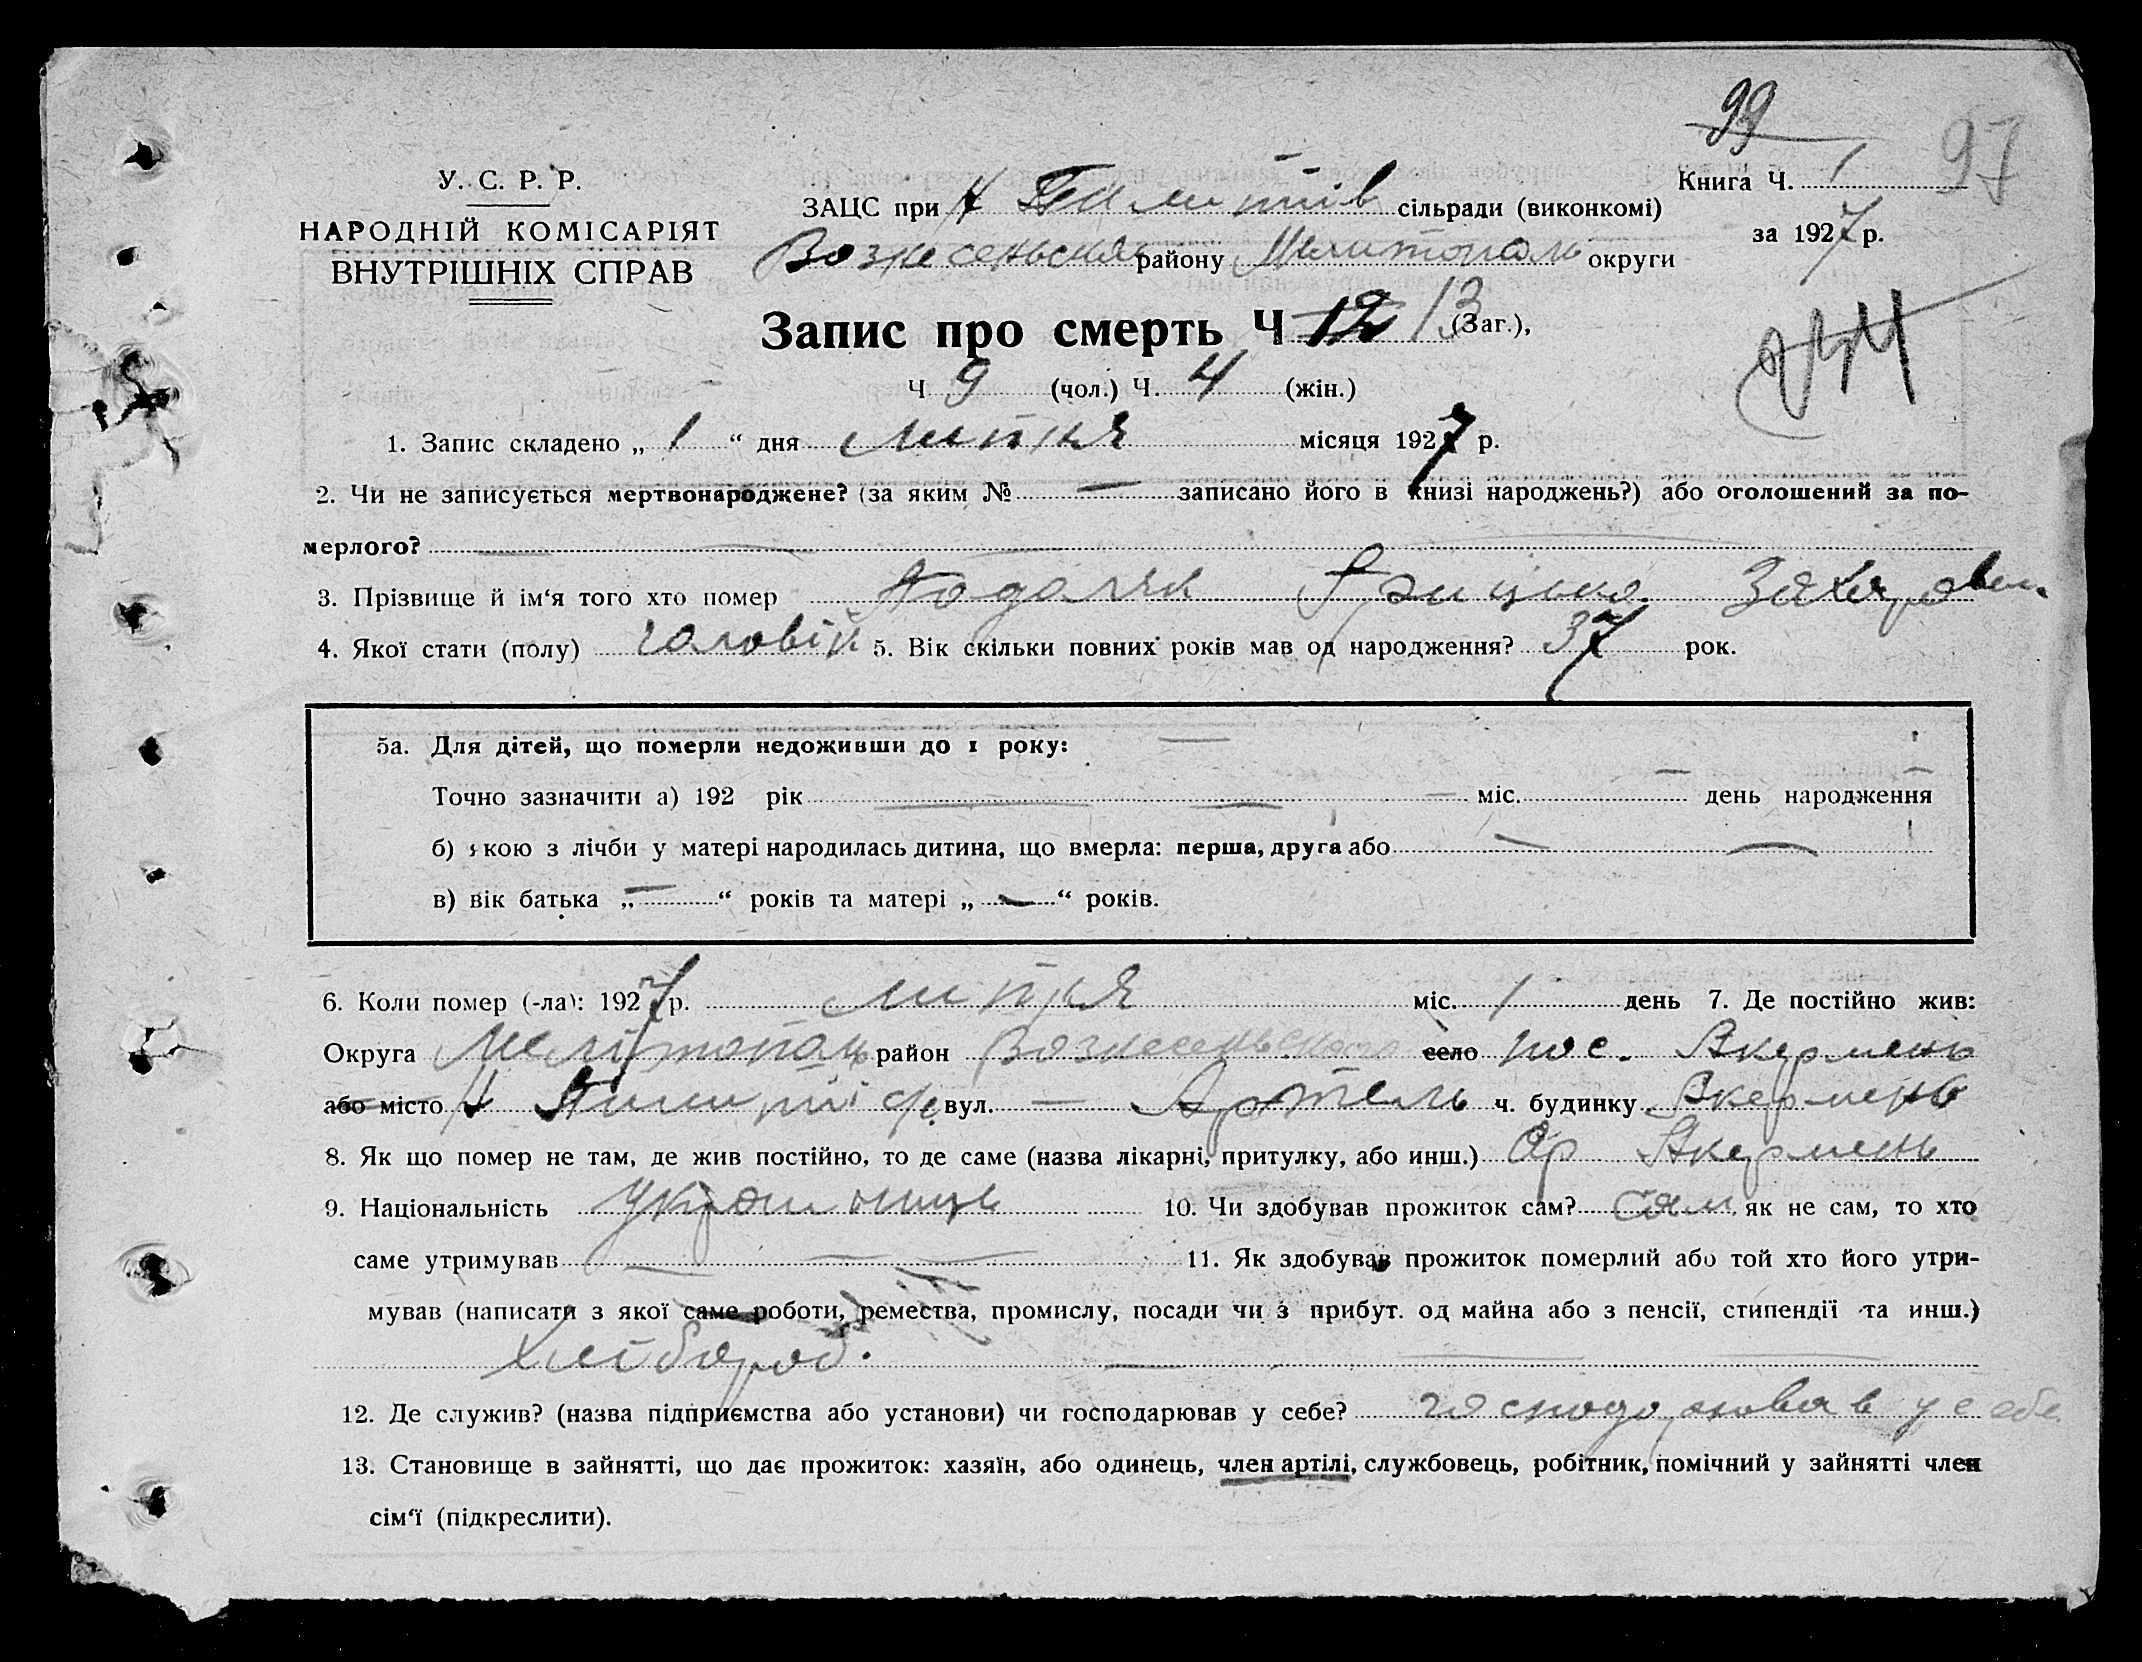 99
97
У. С. Р. Р.
НАРОДНІЙ КОМІСАРІЯТ
ВНУТРІШНІХ СПРАВ
Книга Ч. 1
за 1927 р.
ЗАЦС при сільради (виконкомі)
району Мелитополь округи
Запис про смерть Ч 12 13 (Заг.),
Ч 9 (чол.) Ч. 4 (жін.)
1. Запис складено „ 1 “ дня липня місяця 1927 р.
2. Чи не записується мертвонароджене? (за яким № — записано його в книзі народжень?) або оголошений за по-
мерлого? —
3. Прізвище й ім‘я того хто помер Подоляк Грицько Захаров
4. Якої стати (полу) чоловій 5. Вік скільки повних років мав од народження? 37 рок.
5а. Для дітей, що померли недоживши до 1 року: —
Точно зазначити а) 192 рік — міс. — день народження
б) якою з лічби у матері народилась дитина, що вмерла: перша, друга або —
в) вік батька „ — “ років та матері „ — “ років.
6. Коли помер (-ла): 1927 р. липня міс. 1 день 7. Де постійно жив:
Округа Мелітополь район Вознесеньского село пос. Акермень
або місто вул. — Артель ч. будинку Акермень
8. Як що помер не там, де жив постійно, то де саме (назва лікарні, притулку, або инш.) Ар Акермень
9. Національність Украинець 10. Чи здобував прожиток сам? Сам, як не сам, то хто
саме утримував — 11. Як здобував прожиток померлий або той хто його утри-
мував (написати з якої саме роботи, ремества, промислу, посади чи з прибут. од майна або з пенсії, стипендії та инш.)
Хлібороб. —
12. Де служив? (назва підприємства або установи) чи господарював у себе? господорював у себе
13. Становище в зайнятті, що дає прожиток: хазяїн, або одинець, член артілі, службовець, робітник, помічний у зайнятті член
сім‘ї (підкреслити).